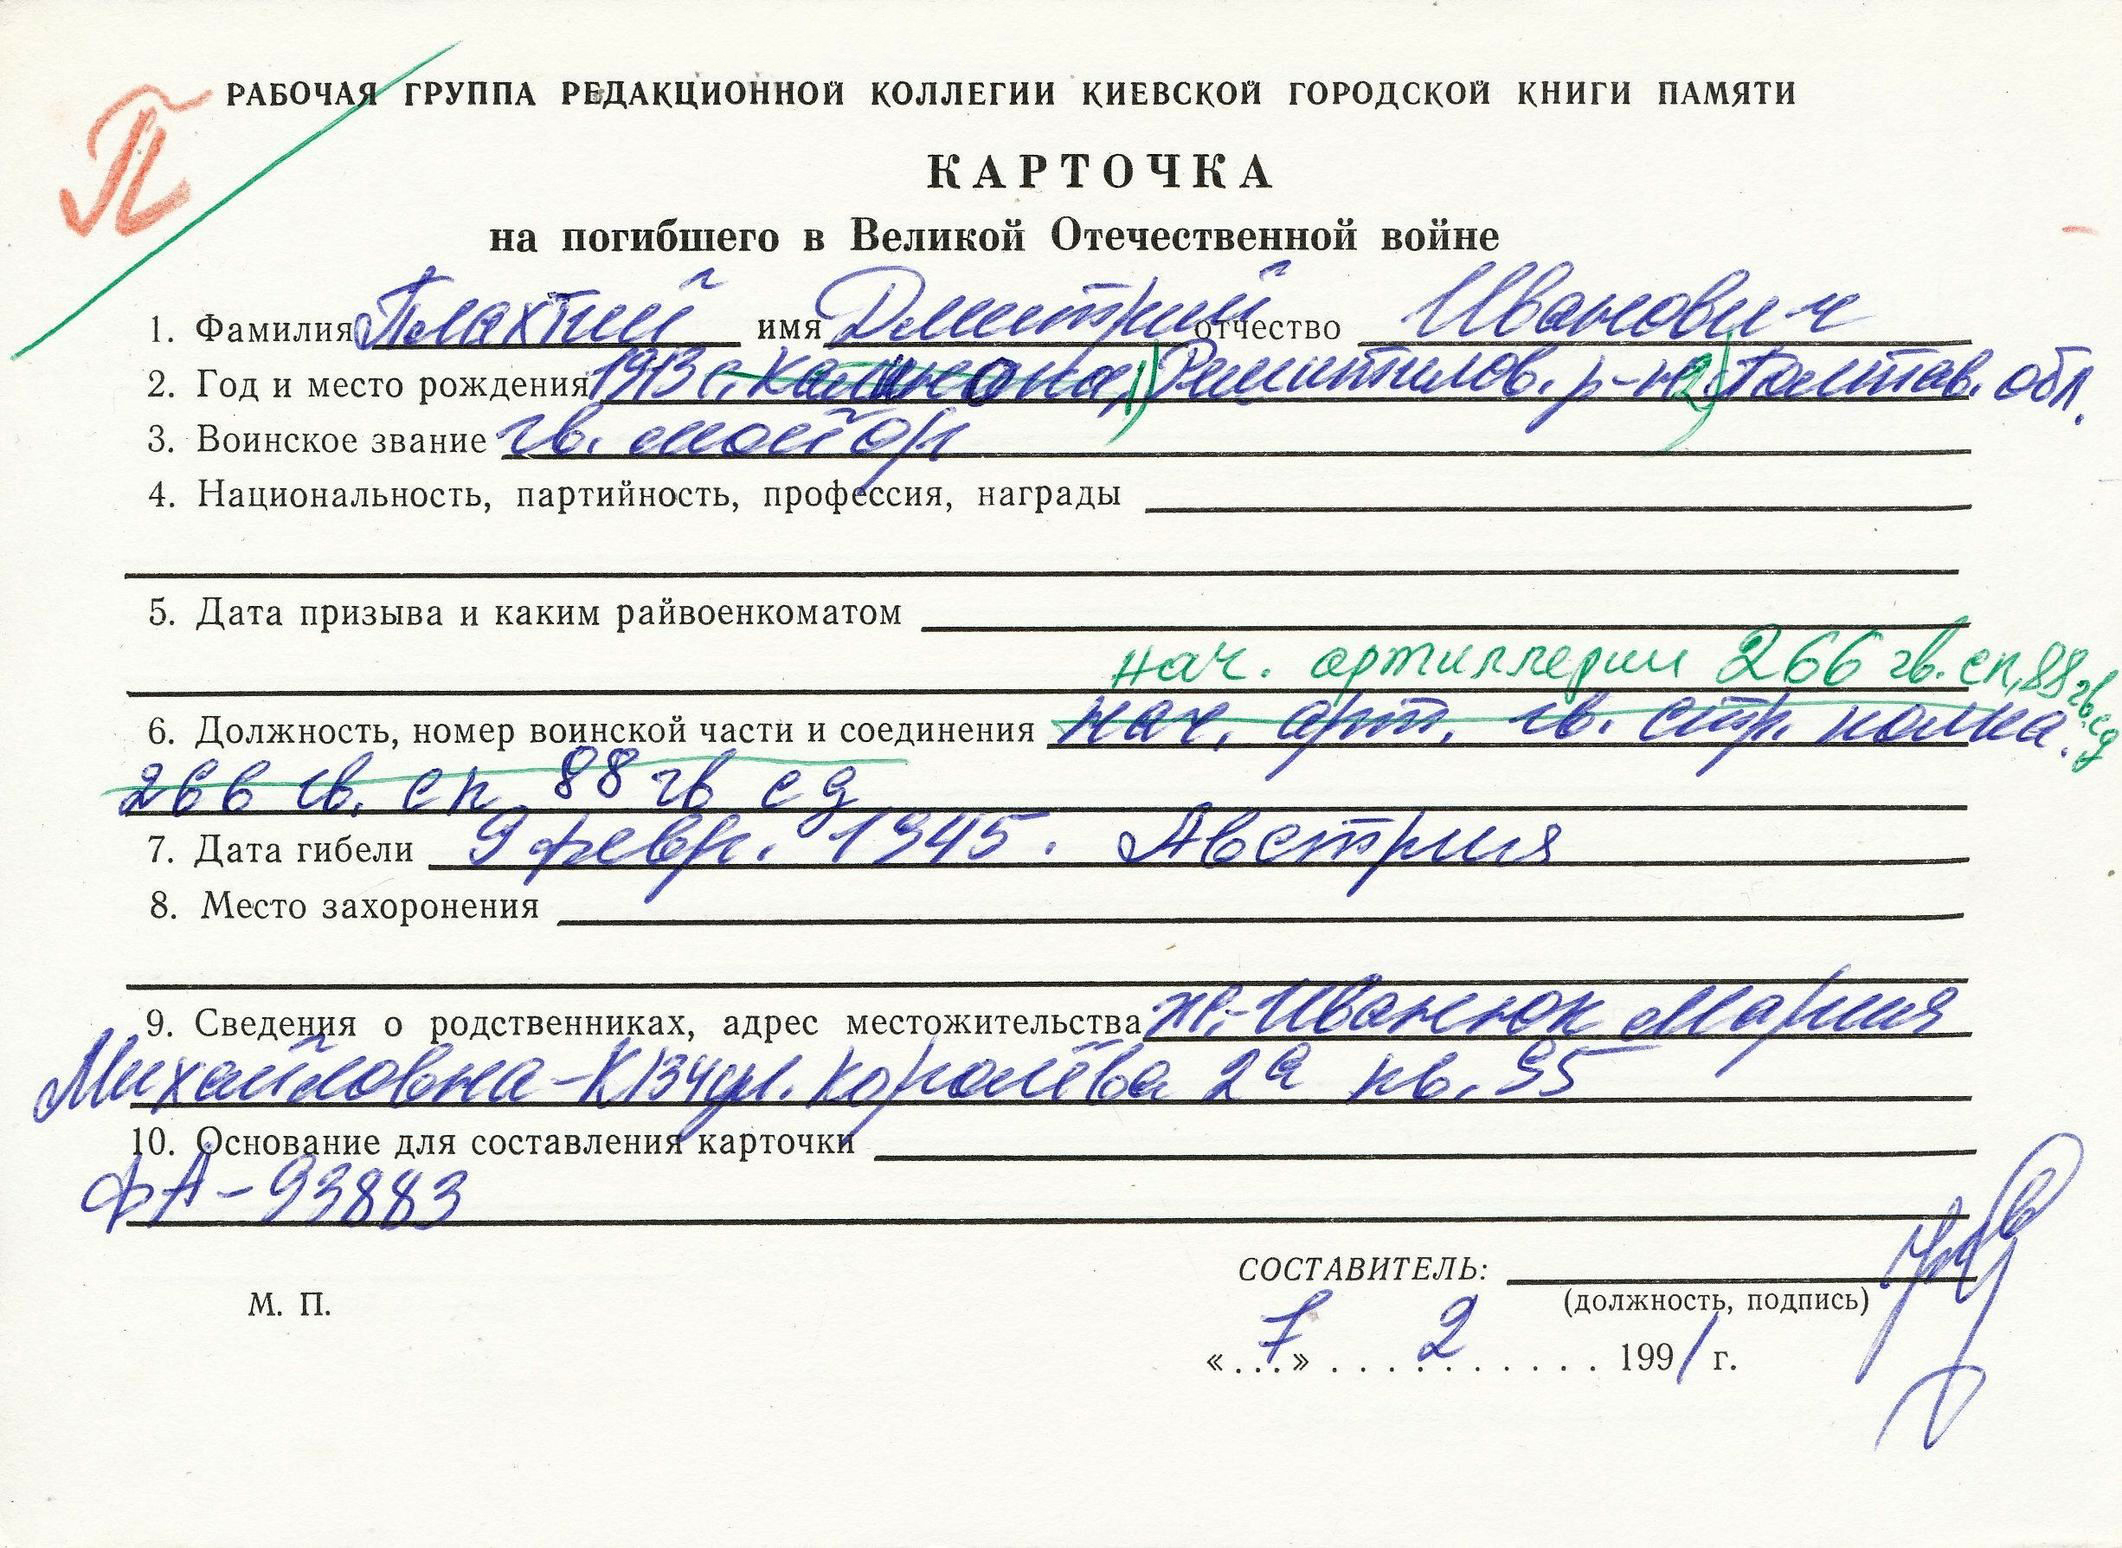 П
РАБОЧАЯ ГРУППА РЕДАКЦИОННОЙ КОЛЛЕГИИ КИЕВСКОЙ ГОРОДСКОЙ КНИГИ ПАМЯТИ
КАРТОЧКА
на погибшего в Великой Отечественной войне
1. Фамилия Плахтий имя Дмитрий отчество Иванович
2. Год и место рождения 1913 с. 1) р-н 2) Полтав. обл.
3. Воинское звание гв. майор
4. Национальность, партийность, профессия, награды
5. Дата призыва и каким райвоенкоматом
нач. артиллерии 266 гв. сп, 88 гв. сд
6. Должность, номер воинской части и соединения нач. арт. гв. стр. полка.
266 гв. сп 88 гв сд
7. Дата гибели 9 февр. 1945. Австрия
8. Место захоронения
9. Сведения о родственниках, адрес местожительства ж.-Иванюк Мария
Михайловна-К134 ул. Королёва 2а кв. 95
10. Основание для составления карточки
ФА-93883
СОСТАВИТЕЛЬ:
(должность, подпись)
М. П.
«7» 2 1991 г.